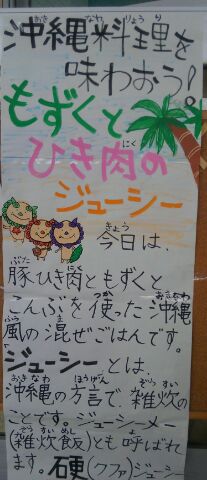 沖縄料理を
味わおう!
もずくと
ひき肉の
ジューシー
今日は、
豚ひき肉ともずくと
こんぶを使った沖縄
風の混ぜごはんです。
ジューシーとは、
沖縄の方言で、雑炊の
ことです。ジューシーメー
(雑炊飯)とも呼ばれ
ます。硬(クファ)ジューシー